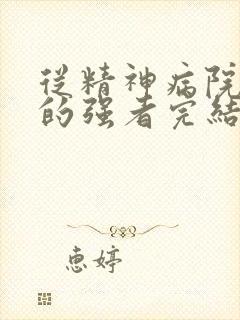 從精神病院
的强者完結
惠婷